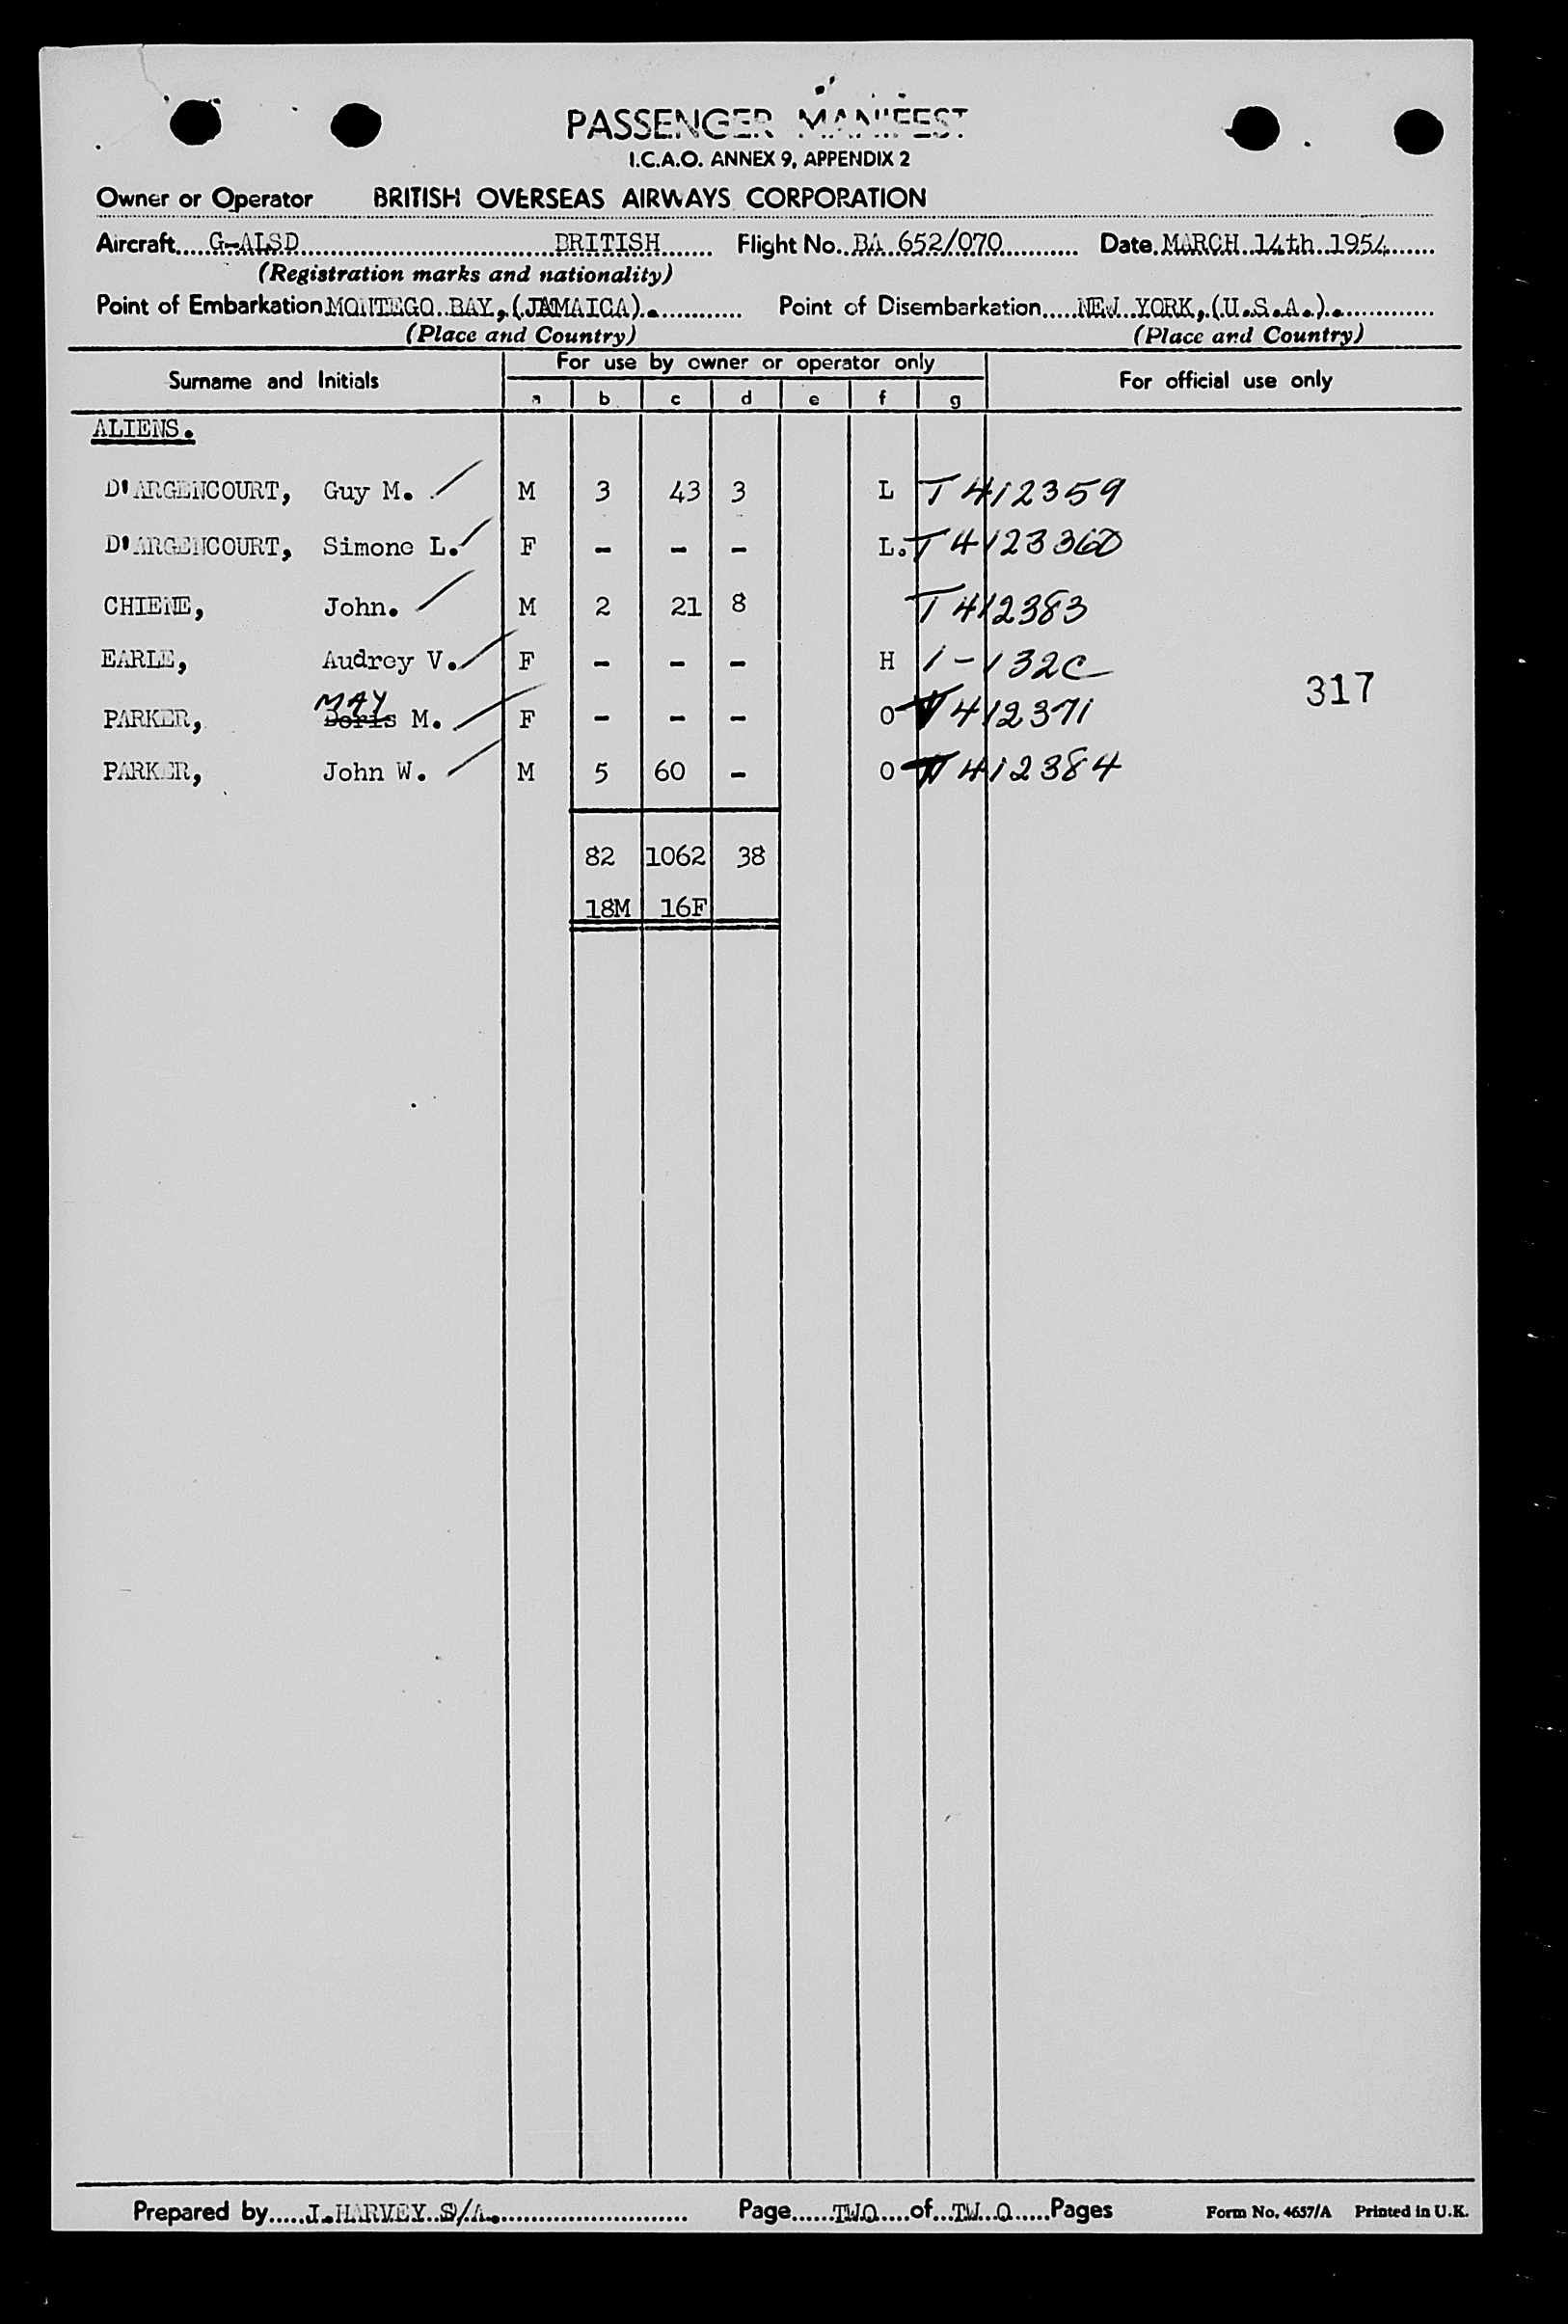 PASSENGER MANIFEST
I.C.A.O. ANNEX 9, APPENDIX 2
Owner or Operator BRITISH OVERSEAS AIRWAYS CORPORATION
Aircraft.....G-ALSD..........BRITISH...... Flight No...BA 652/070.......... Date..MARCH 14th 1954......
(Registration marks and nationality)
Point of Embarkation MONTEGO BAY, (JAMAICA)............. Point of Disembarkation.....NEW YORK, (U.S.A.).............
(Place and Country) (Place and Country)
Surname and Initials For use by owner or operator only For official use only
a b c d e f g
ALIENS.
D'ARGENCOURT, Guy M. M 3 43 3 L T 412359
D'ARGENCOURT, Simone L. F - - - L. T 4123360
CHIENE, John. M 2 21 8 T 412383
EARLE, Audrey V. F - - - H 1-132C
317
MAY
PARKER, Doris M. F - - - O 412371
PARKER, John W. M 5 60 - O 412384
82 1062 38
18M 16F
Prepared by.....J.HARVEY S/A........................... Page......TWO.....of...TW O......Pages Form No. 4657/A Printed in U.K.